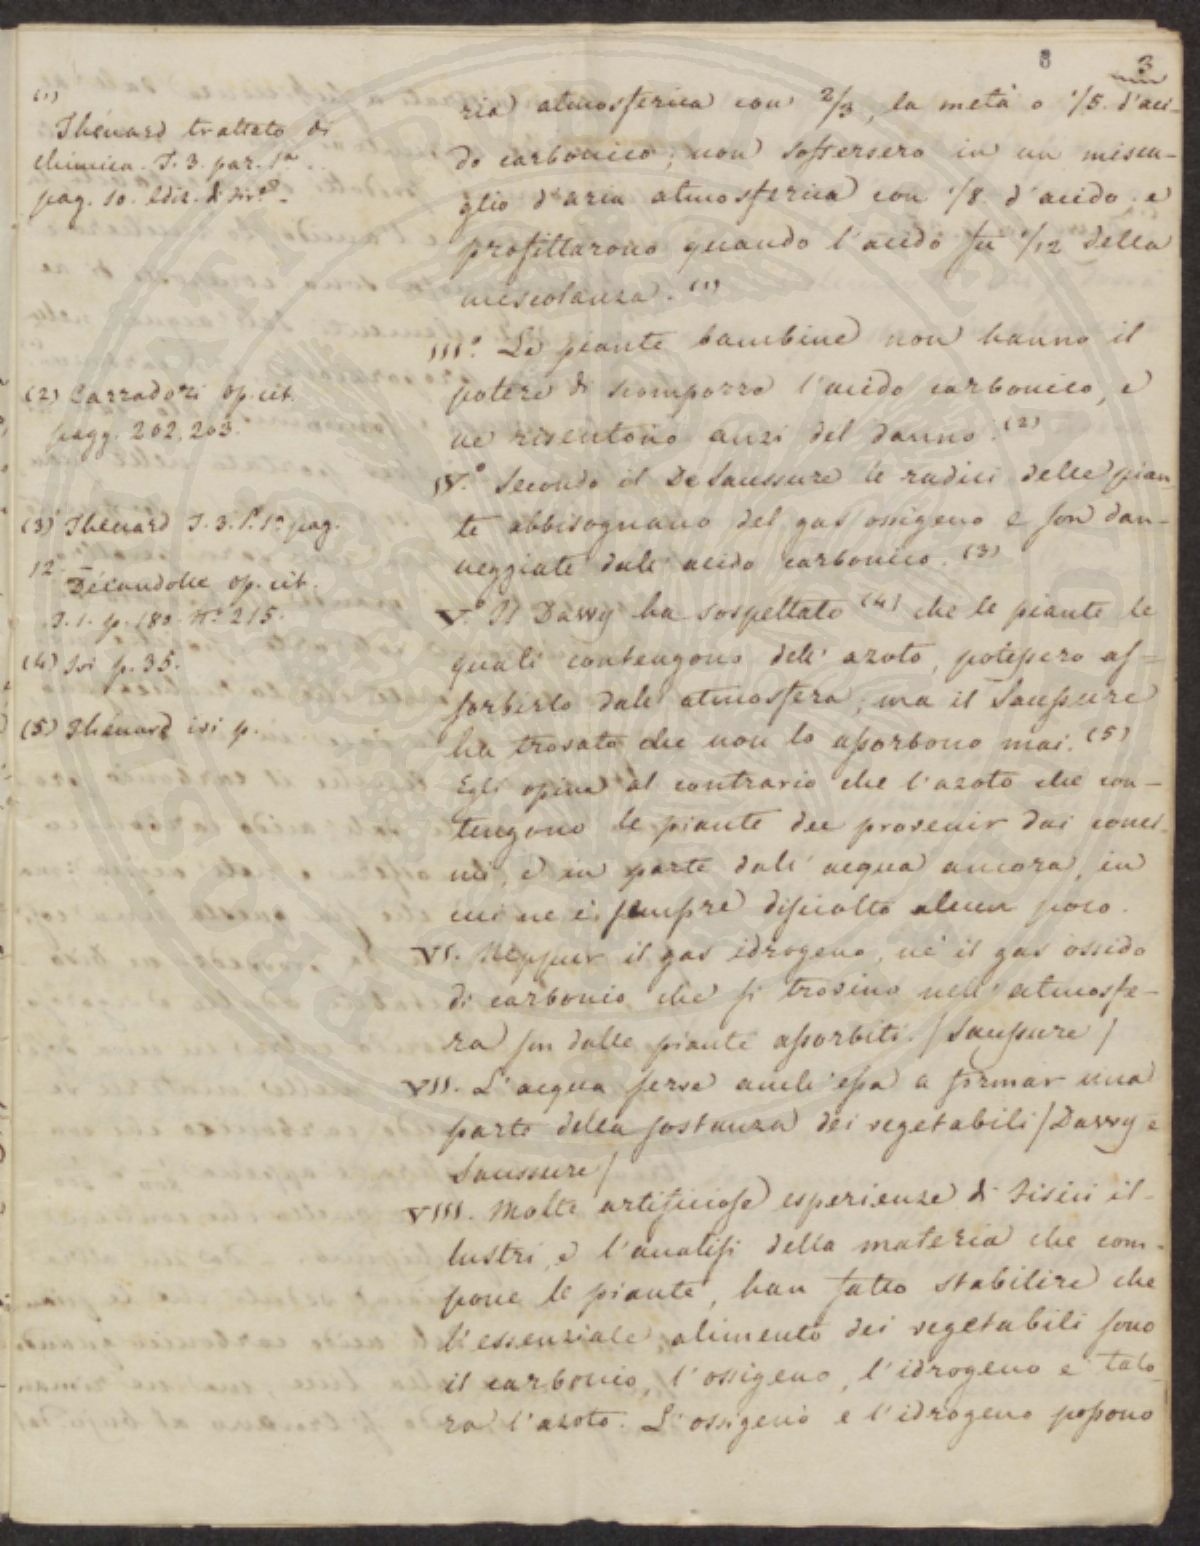 8 3
(1)
Thénard trattato di
chimica. T. 3. par. 1a.
pag. 10. Ediz. di
(2) Carradori op. cit.
pagg. 202. 203.
(3) Thénard T. 3. P. 1a pag.
12.
Décandolle op. cit.
T. 1. p. 180. N.o 215.
(4) Ivi p. 35.
(5) Thénard ivi p.
ria atmosferica con 2/3, la metà o 1/5. d'aci-
do carbonico; non soffersero in un miscu-
glio d'aria atmosferica con 1/8 d'acido, e
profittarono quando l'acido fu 1/12 della
miscolanza. (1)
III.o Le piante bambine non hanno il
potere di scomporre l'acido carbonico, e
ne risentono anzi del danno. (2)
IV.o Secondo il De Saussure le radici delle pian-
te abbisognano del gas ossigeno e son dan-
neggiate dall' acido carbonico. (3)
V.o Il Dawy ha sospettato (4) che le piante le
quali contengono dell' azoto, potessero as-
sorbirlo dall' atmosfera, ma il Saussure
ha trovato che non lo assorbono mai. (5)
Egli opina al contrario che l'azoto che con-
tengono le piante dee provenir dai conci-
mi, e in parte dall' acqua ancora, in
cui ne è sempre disciolto alcun poco.
VI. Neppur il gas idrogeno, nè il gas ossido
di carbonio che si trovino nell' atmosfe-
ra son dalle piante assorbiti. / Saussure /
VII. L'acqua serve anch' essa a formar una
parte della sostanza dei vegetabili / Dawy e
Saussure /
VIII. Molte artificiose esperienze di Fisici il-
lustri, e l'analisi della materia che com-
pone le piante, han fatto stabilire che
l'essenziale alimento dei vegetabili sono
il carbonio, l'ossigeno, l'idrogeno e talo-
ra l'azoto. L'ossigeno e l'idrogeno possono